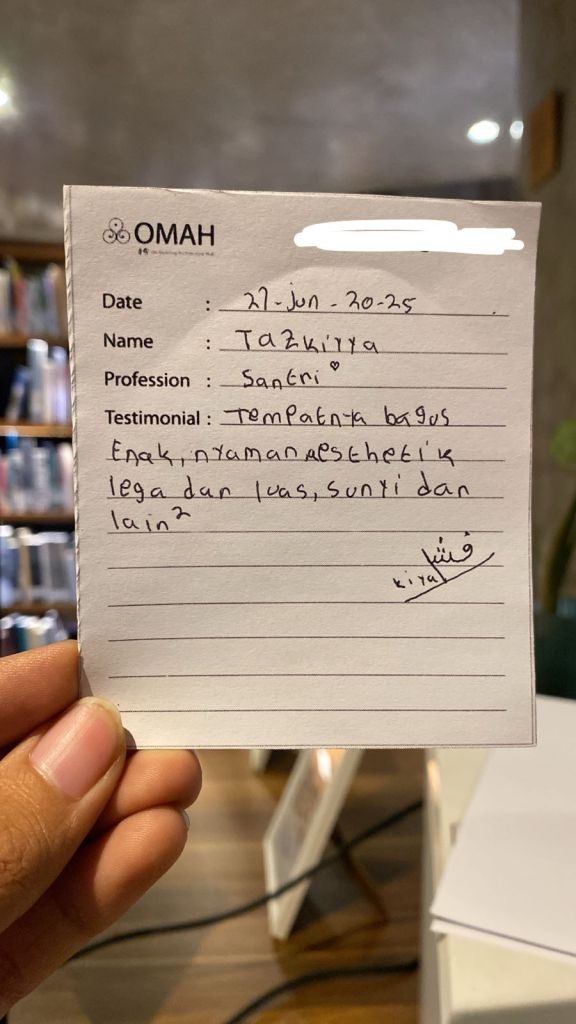 OMAH
Date : 27-Jun-20-25
Name : Tazkiyya
Profession : Santri
Testimonial : Tempatnya bagus
Enak, nyaman Aesthetik
lega dan luas, sunyi dan
lain²
kiya